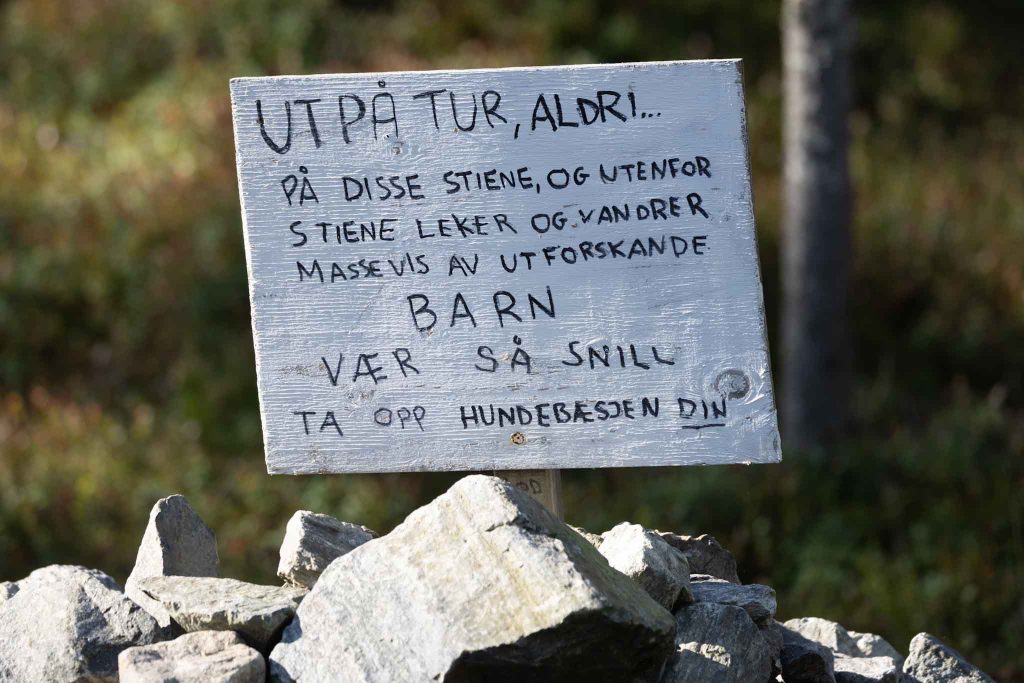 UT PÅ TUR, ALDRI...
PÅ DISSE STIENE, OG UTENFOR
STIENE LEKER OG VANDRER
MASSEVIS AV UTFORSKANDE
BARN
VÆR SÅ SNILL
TA OPP HUNDEBÆSJEN DIN